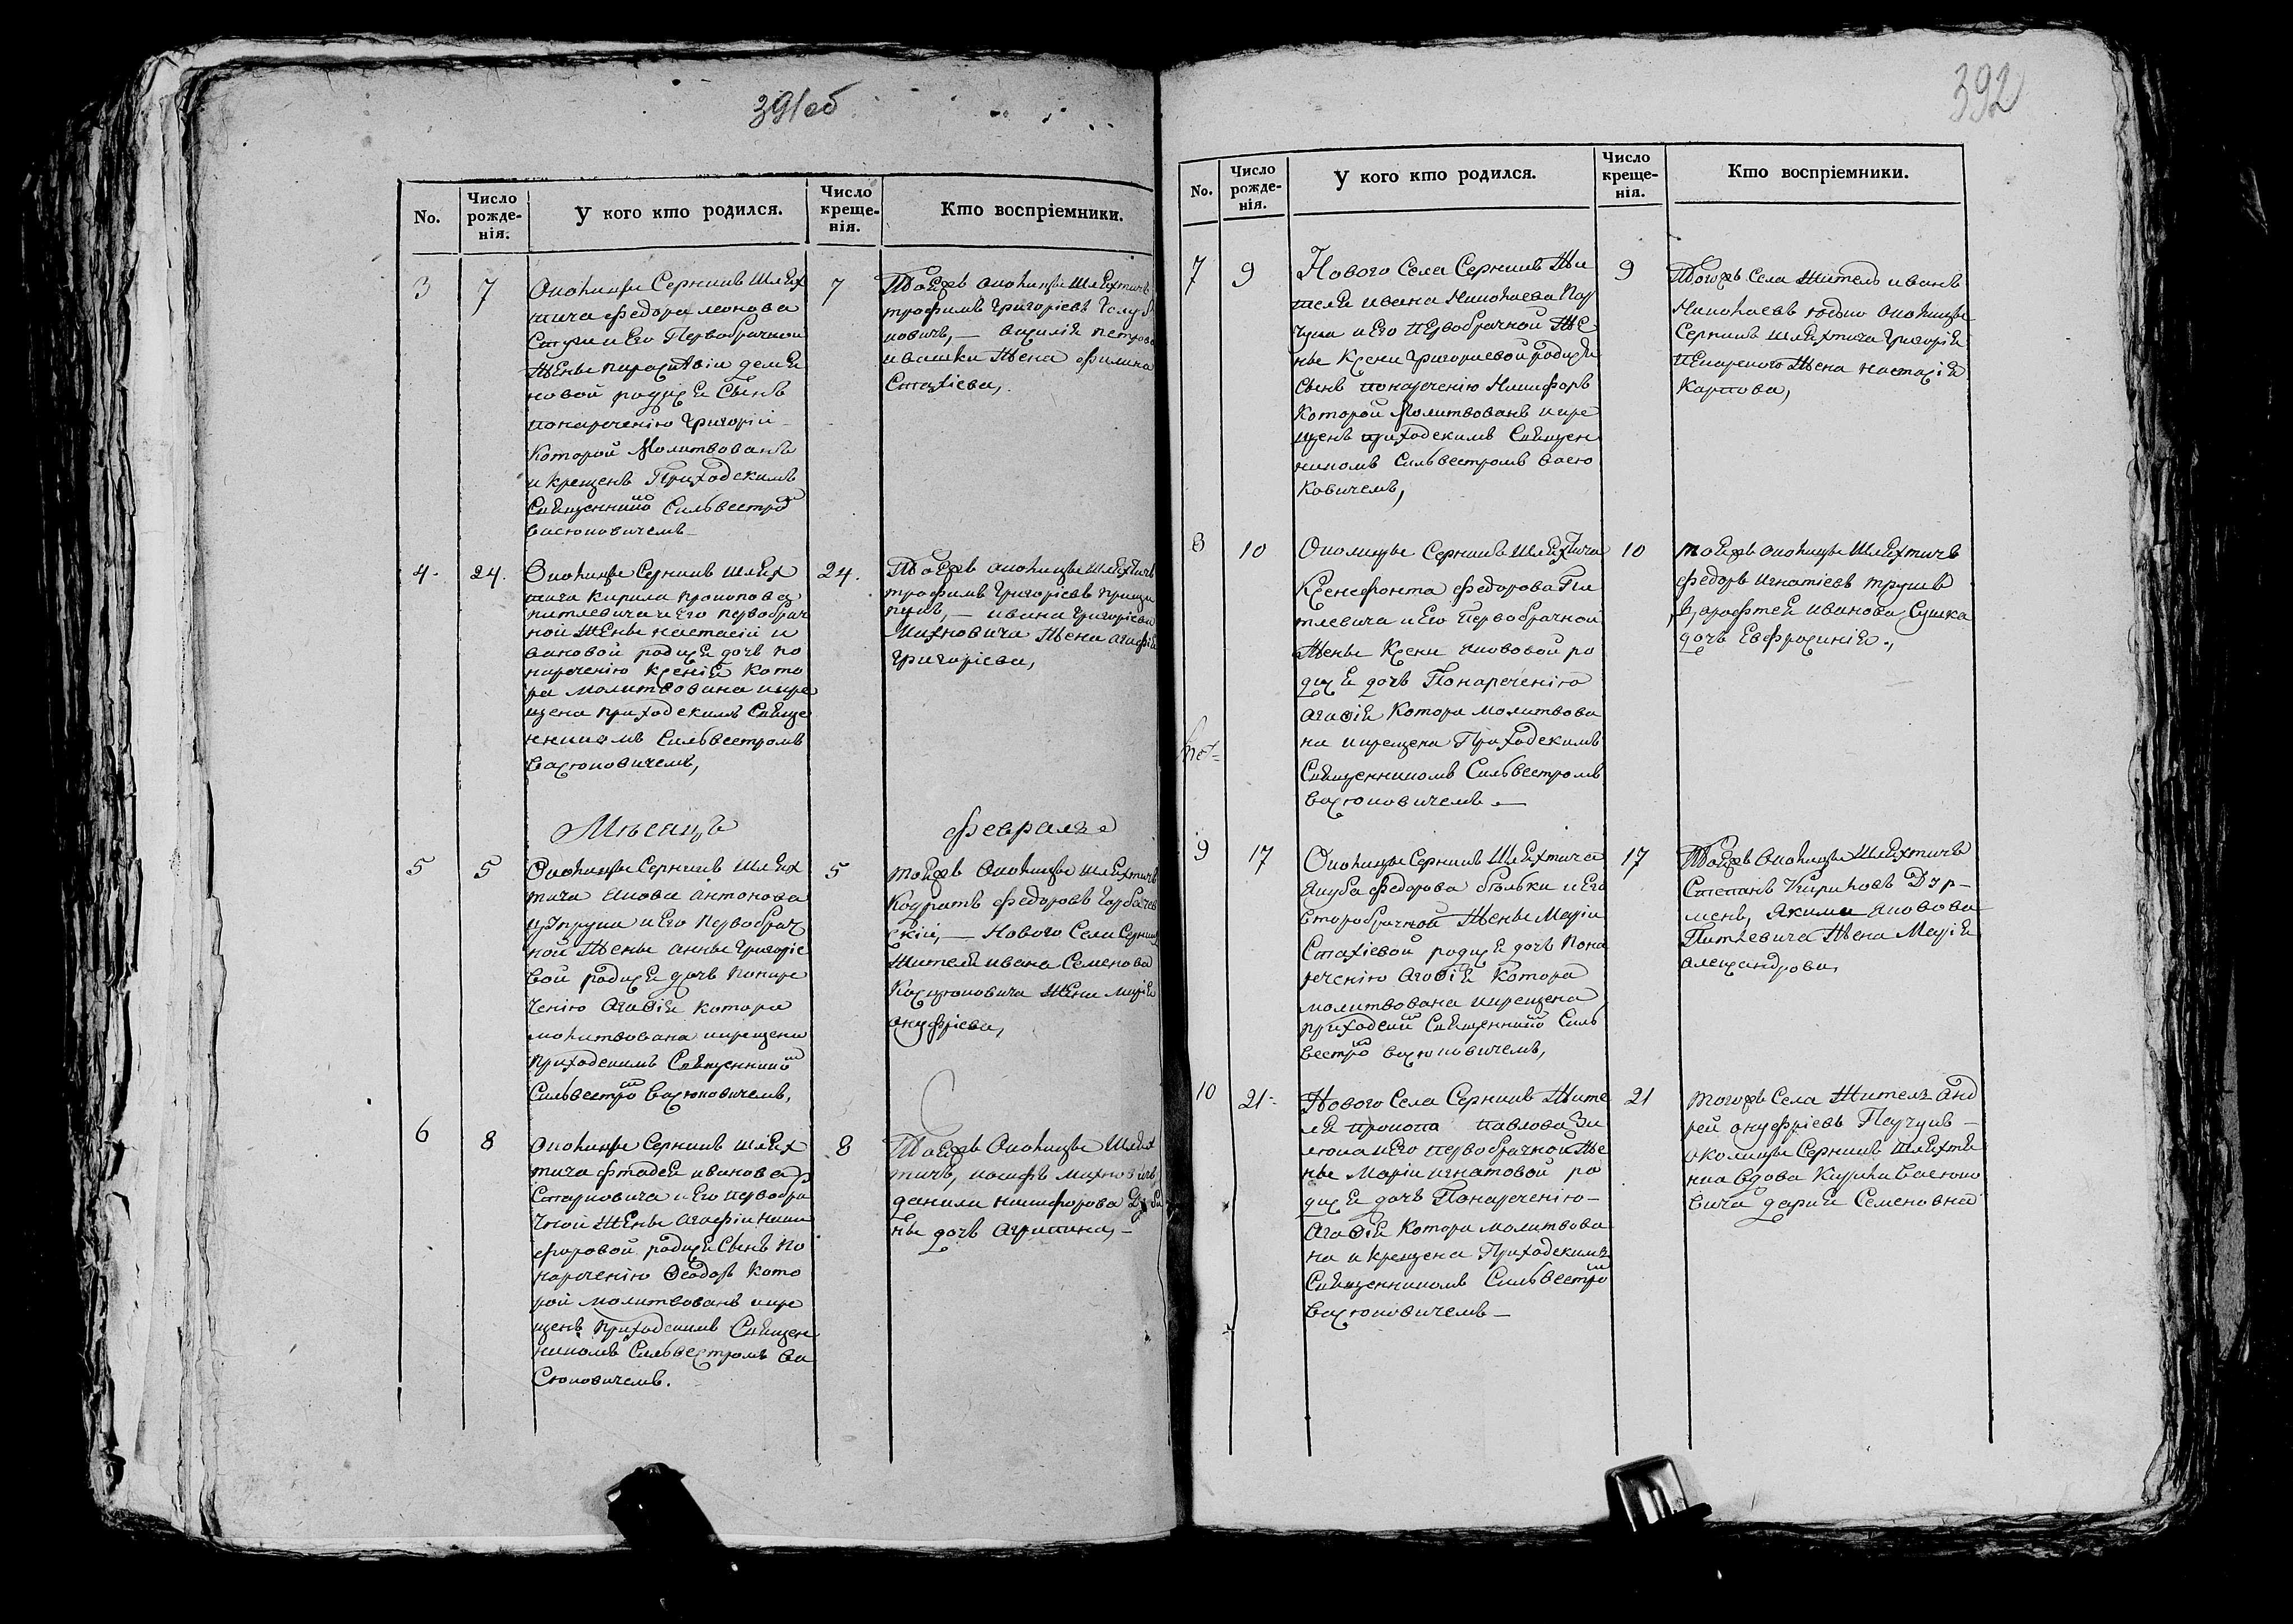 391об
No.
Число рожде-нія.
У кого кто родился.
Число креще-нія.
Кто воспріемники.
3
7
Околицы Серникъ шлях
тича Федора леонова
и Его Первобрачной
Женѣ параскѣвіи
новой родися Сынъ
понареченію Григорій
Которой Молитвованъ
и крещенъ Приходскимъ
Священнико Сильвестро
Васюковичемъ
7
Тояжъ околицы шляхтичъ
трофимъ Григоріевъ
Василія петрова
ивашки Жена
4
24.
Околицы Серникъ шлях
тича Кирила прокопова
питлевича и Его первобрач
ной Женѣ настасіи и
вановой родися дочь по
нареченію Ксенія Кото
ра молитвована и кре
щена приходскимъ Свяще
нникомъ Сильвестромъ
Васюковичемъ,
24.
Тояжъ околицы шляхтичъ
трофимъ Григоріевъ
ивана Григорієва
Михновича Жена агафія
Григоріева,
Мѣсяцъ
февраля
5
5
Околицы Серникъ шлях
тича якова антонова
и Его первобрач
ной Женѣ аннѣ Григоріе
вой родися дочь понаре
ченію Агафія котора
молитвована и крещена
приходскимъ Священнико
Сильвестро Васюковичемъ,
5
Тояжъ Околицы шляхтичъ
Кодратъ Федоровъ Горбачев
скій, — Нового Села Серникъ
Жителя ивана Семенова
Жена марія
онуфріева,
6
8
околицы Серникъ шлях
тича фтадея иванова
и Его первобра
чной Женѣ агафіи ники
форовой родися Сынъ по
нареченію Ѳеодоръ Кото
рой молитвованъ и кре
щенъ приходскимъ Священ
никомъ Сильвестромъ Ва
Сюковичемъ.
8
Тояжъ Околицы Шлях
тичъ, іосифъ
данили никифорова
дочь агрипина, —
392
No.
Число рожде-нія.
У кого кто родился.
Число креще-нія.
Кто воспріемники.
7
9
Нового Села Серникъ Жи
теля ивана Николаева Пау
чука и Его первобрачной Же
нѣ Ксени Григориевой родися
Сынъ понареченію Никифоръ
Которой Молитвованъ и кре
щенъ приходскимъ Священ
никомъ Сильвестромъ Васю
Ковичемъ,
9
Тогожъ Села Житель иванъ
Николаевъ околицы
Серникъ шляхтича Григорія
Жена настасія
Карпова,
8
10
Околицы Серникъ шляхтича
Ксенефонта федорова Пи
тлевича и Его Первобрачной
Женѣ Ксени яковой ро
дися дочь Понареченію
агафія Котора молитвова
на и крещена Приходскимъ
Священникомъ Сильвестромъ
Васюковичемъ —
10
тояжъ околицы шляхтичъ
федоръ игнатіевъ
иванова Сушка
дочь Евфросинія.,
9
17
Околицы Серникъ Шляхтича
Якуба федорова и Его
второбрачной Женѣ Маріи
Стахіевой родися дочь Пона
реченію Агафія Котора
молитвована и крещена
приходски Священнико Силь
вестро Васюковичемъ,
17
Тояжъ Околицы Шляхтичъ
Степанъ Кириловъ Дур-
менъ, Якима яковова
Питлевича Жена Марія
александрова,
10
21
Нового Села Серникъ Жите
ля прокопа павлова Зи
люка и Его первобрачной Же
нѣ Маріи игнатовой ро
дися дочь Понареченію —
Агафія Котора молитвова
на и крещена Приходскимъ
Священникомъ Сильвестро
Васюковичемъ —
21
тогожъ Села Житель Анд
рей онуфріевъ Паучукъ —
околицы Серникъ шляхтя
нка вдова Кирила Васюко
вича дарія Семеновна